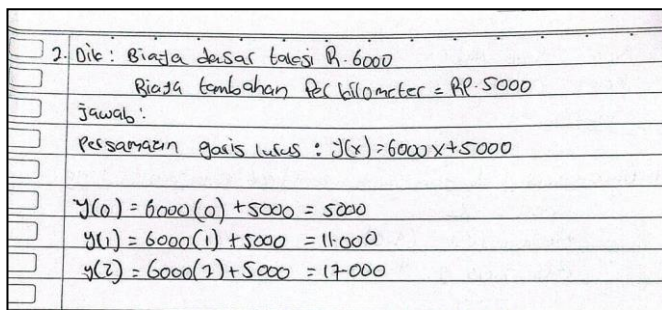 2. Dik : Biaya dasar taksi R. 6000
Biaya tambahan Per kilometer = RP. 5000
Jawab :
Persamaan garis lurus : y(x) = 6000 x + 5000
y(0) = 6000 (0) + 5000 = 5000
y(1) = 6000 (1) + 5000 = 11.000
y(2) = 6000 (2) + 5000 = 17.000